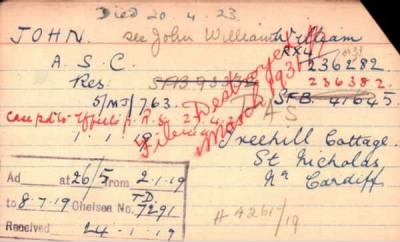 Died 20.4.23.
JOHN. see John William William
RX4
A. S. C. 236282
Res: 236382.
5/MJ/763. SFB. 41645
File Destroyed March 1931
1.1.19
Treehill Cottage.
St Nicholas
Nr Cardiff
Ad at 26/5 from 2-1-19
to 8-7-19 Chelsea No. T.D. 7291
Received 24-1-19
A 4261/19